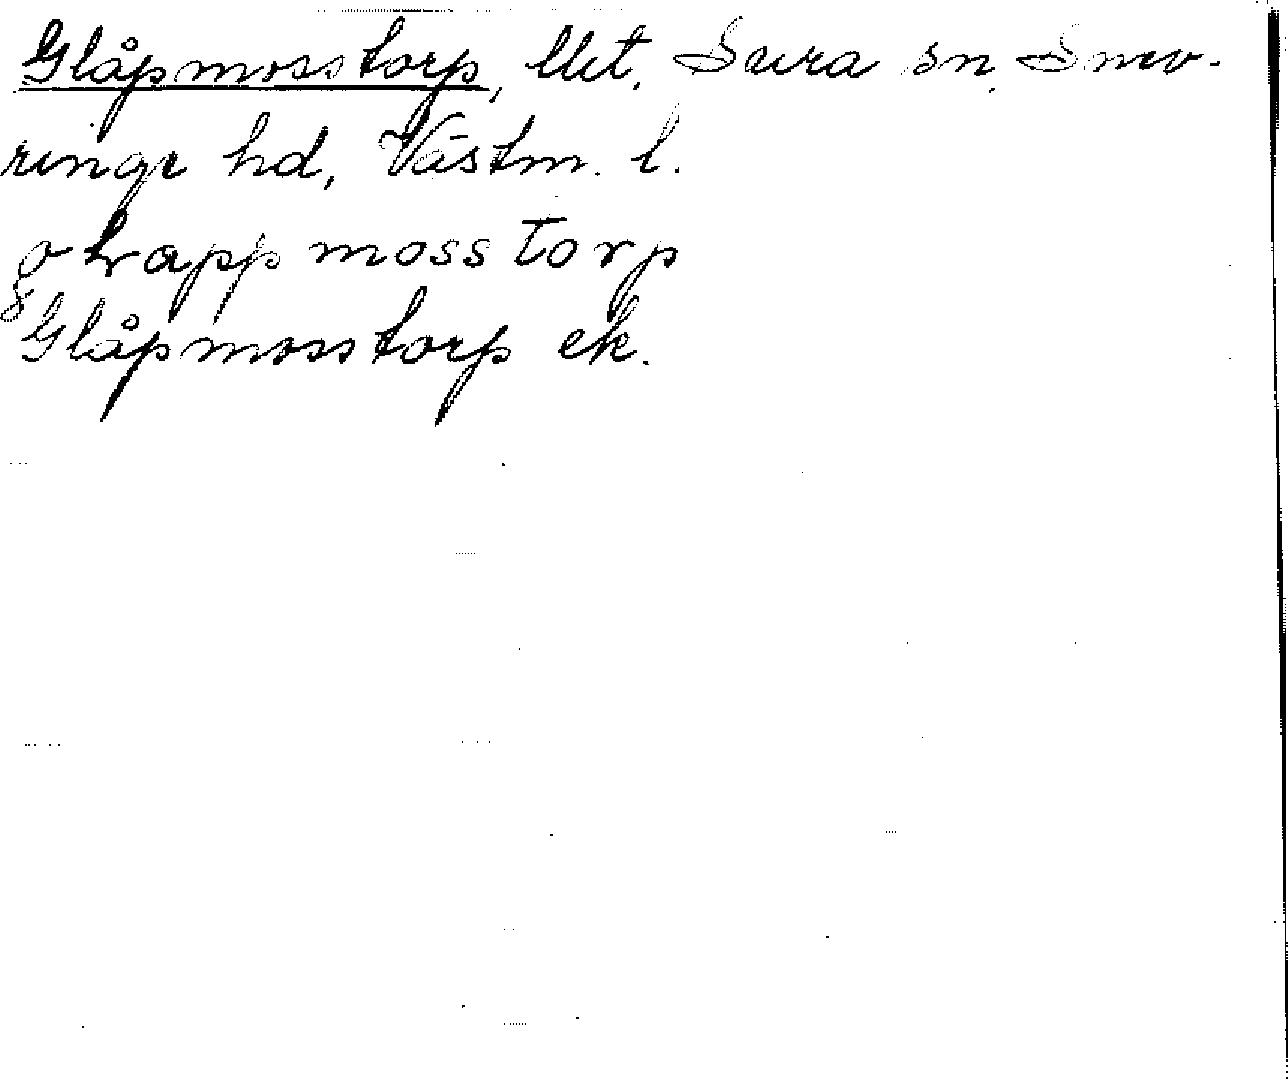 Glåpmosstorp, lht, Sura sn Snev-
ringe hd, Västm. l.
grapp moss torp
Glåpmosstorp ek.